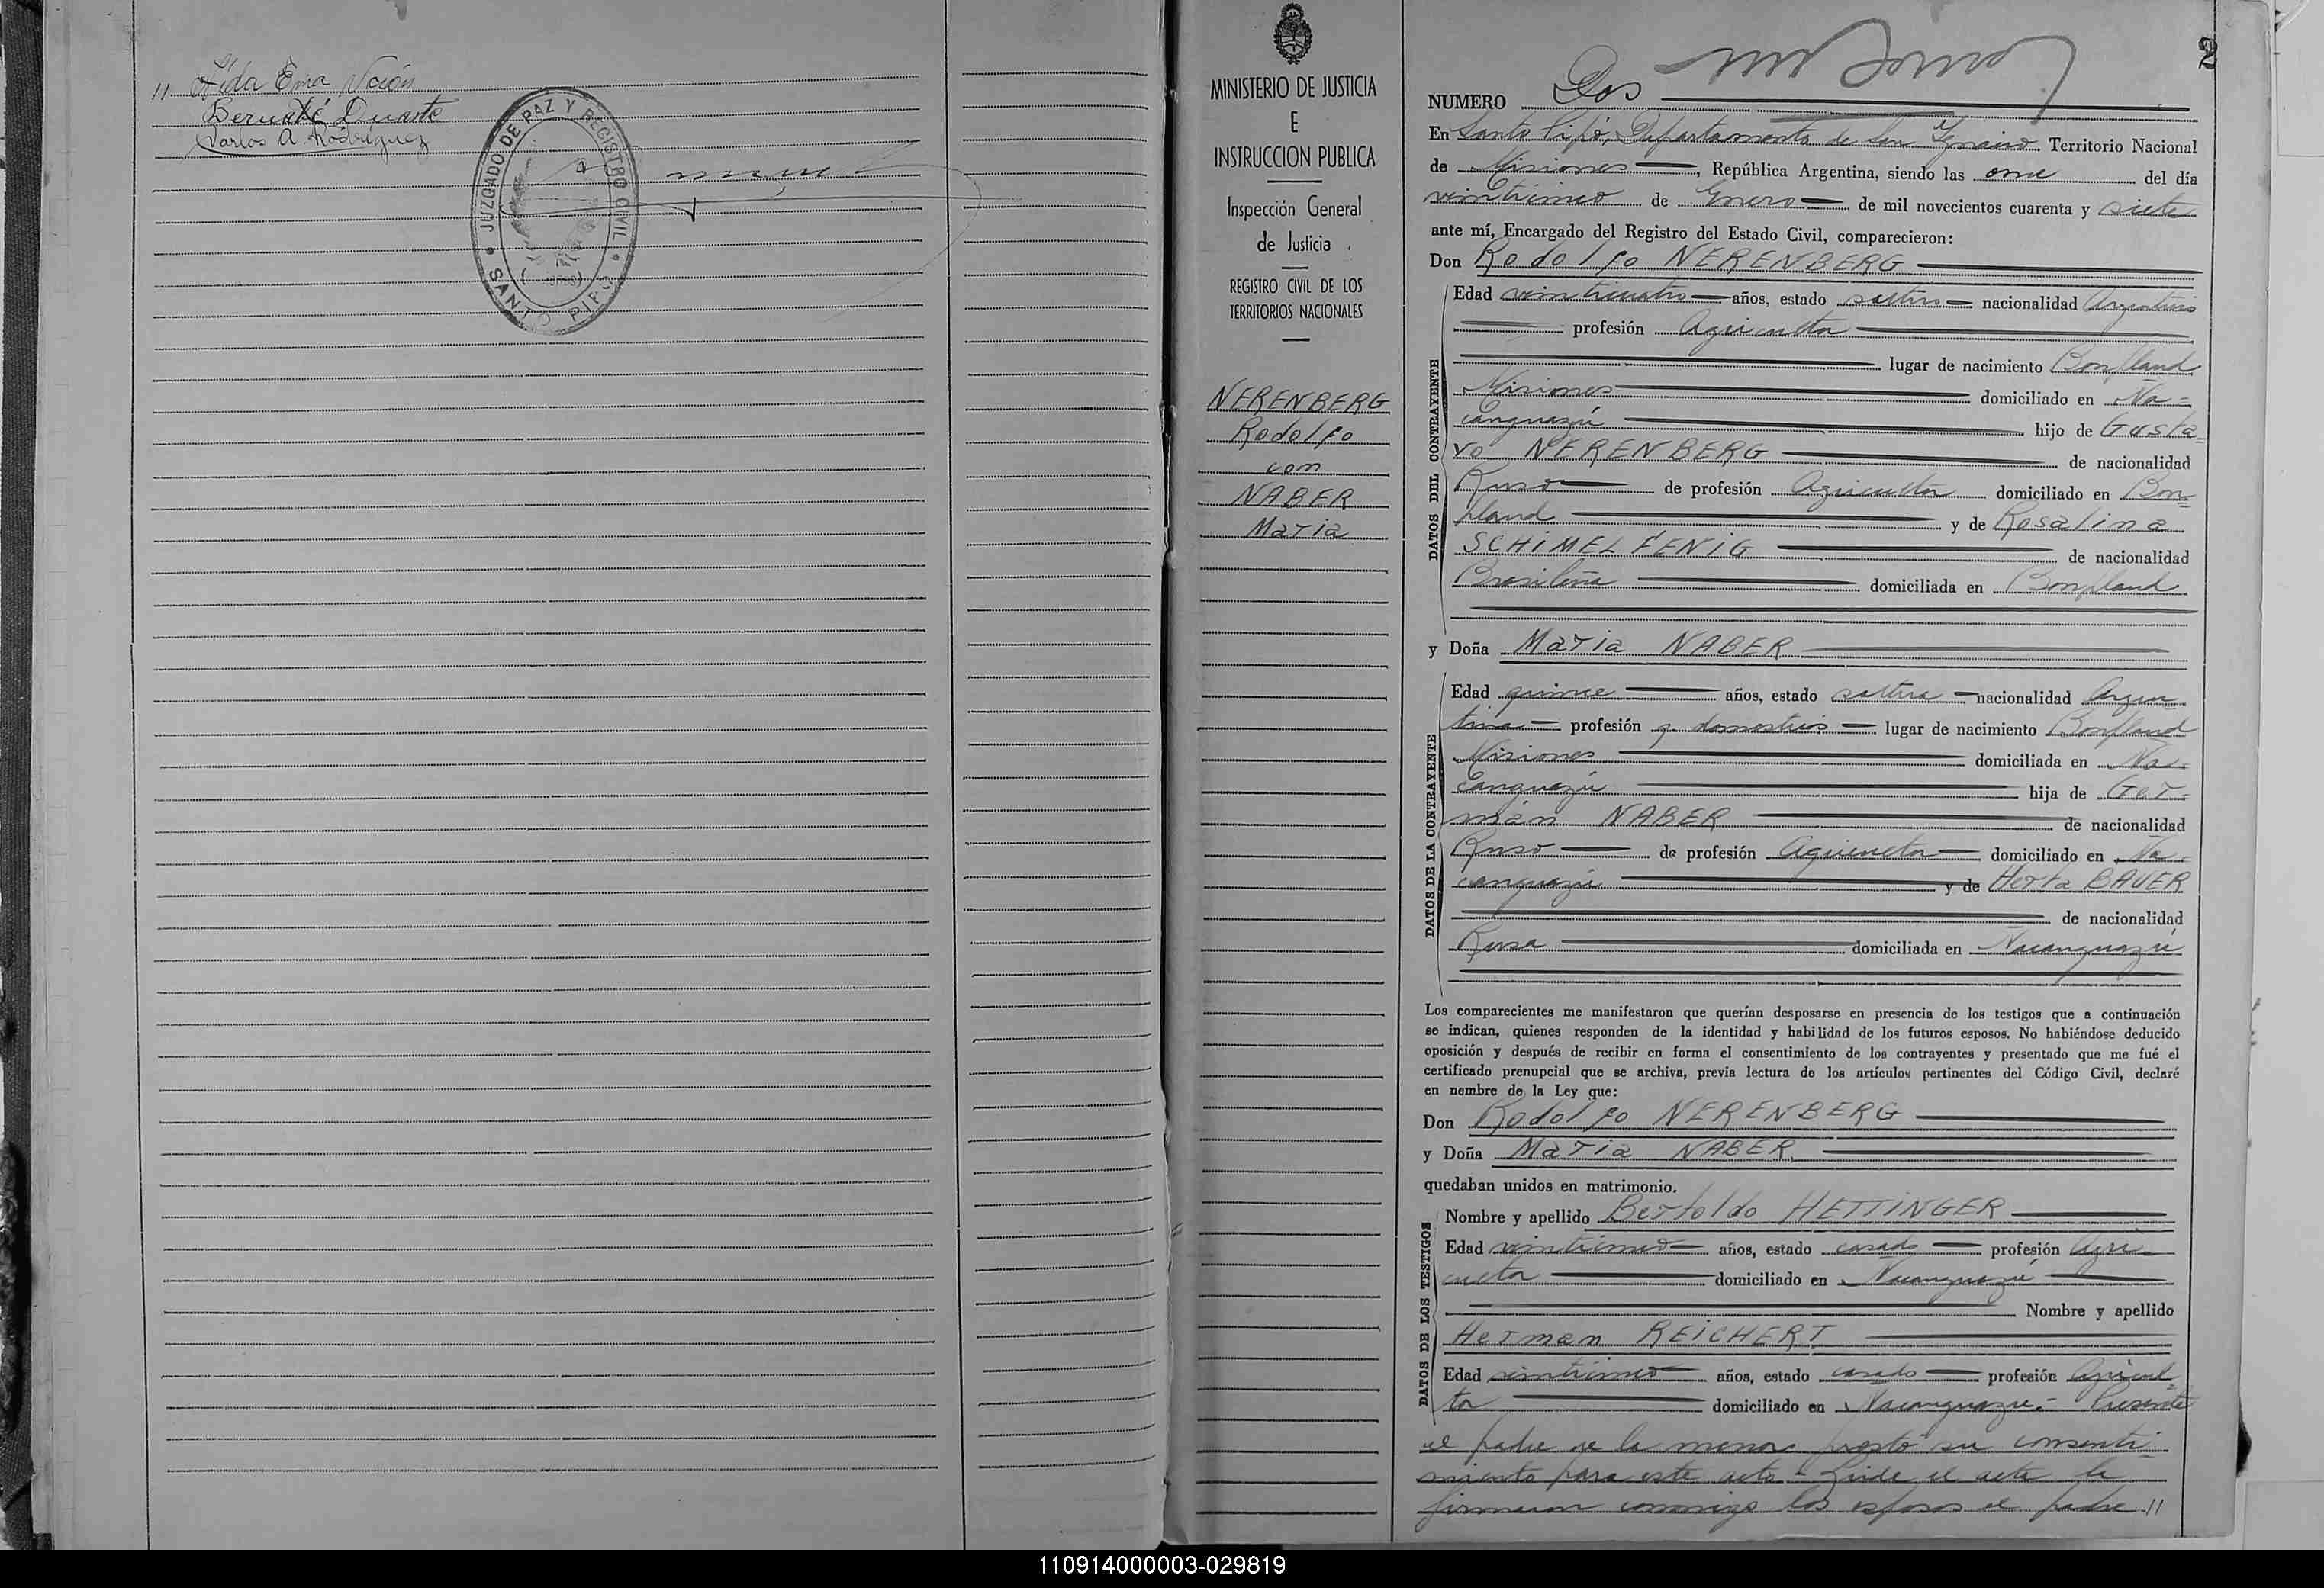 11 Aida Ema Nación
Bernabé Duarte
Carlos A. Rodriguez
JUZGADO DE PAZ Y REGISTRO CIVIL
SANTO PIPO
MINISTERIO DE JUSTICIA
E
INSTRUCCION PUBLICA
Inspección General
de Justicia
REGISTRO CIVIL DE LOS
TERRITORIOS NACIONALES
NERENBERG
Rodolfo
con
NABER
Maria
2
NUMERO Dos
En Santo Pipó, Departamento de San Ygnacio Territorio Nacional
de Misiones, República Argentina, siendo las once del día
veinticinco de Enero de mil novecientos cuarenta y siete
ante mí, Encargado del Registro del Estado Civil, comparecieron:
Don Rodolfo NERENBERG
DATOS DEL CONTRAYENTE
Edad veinticuatro años, estado soltero nacionalidad Argentino
profesión Agricultor
lugar de nacimiento Bonpland
Misiones domiciliado en Ña=
canguazú hijo de Gusta=
vo NERENBERG de nacionalidad
Ruso de profesión Agricultor domiciliado en Bon=
pland y de Rosalina
SCHIMELFENIG de nacionalidad
Brasileña domiciliada en Bonpland
y Doña Maria NABER
DATOS DE LA CONTRAYENTE
Edad quince años, estado soltera nacionalidad Argen
tina profesión q. domesticos lugar de nacimiento Bonpland
Misiones domiciliada en Ña-
canguazú hija de Ger=
mán NABER de nacionalidad
Ruso de profesión Agricultor domiciliado en Ña-
canguazú y de Herta BAUER
de nacionalidad
Rusa domiciliada en Ñacanguazú
Los comparecientes me manifestaron que querían desposarse en presencia de los testigos que a continuación
se indican, quienes responden de la identidad y habilidad de los futuros esposos. No habiéndose deducido
oposición y después de recibir en forma el consentimiento de los contrayentes y presentado que me fué el
certificado prenupcial que se archiva, previa lectura de los artículos pertinentes del Código Civil, declaré
en nombre de la Ley que:
Don Rodolfo NERENBERG
y Doña Maria NABER.
quedaban unidos en matrimonio.
DATOS DE LOS TESTIGOS
Nombre y apellido Bertoldo HETTINGER
Edad veinticinco años, estado casado profesión Agri-
cultor domiciliado en Ñacanguazú
Nombre y apellido
Herman REICHERT
Edad veinticinco años, estado casado profesión Agricul=
tor domiciliado en Ñacanguazú.- Presente
el padre de la menor prestó su consenti-
miento para este acto - Leida el acta la
firmaron conmigo los esposos el padre //
110914000003-029819